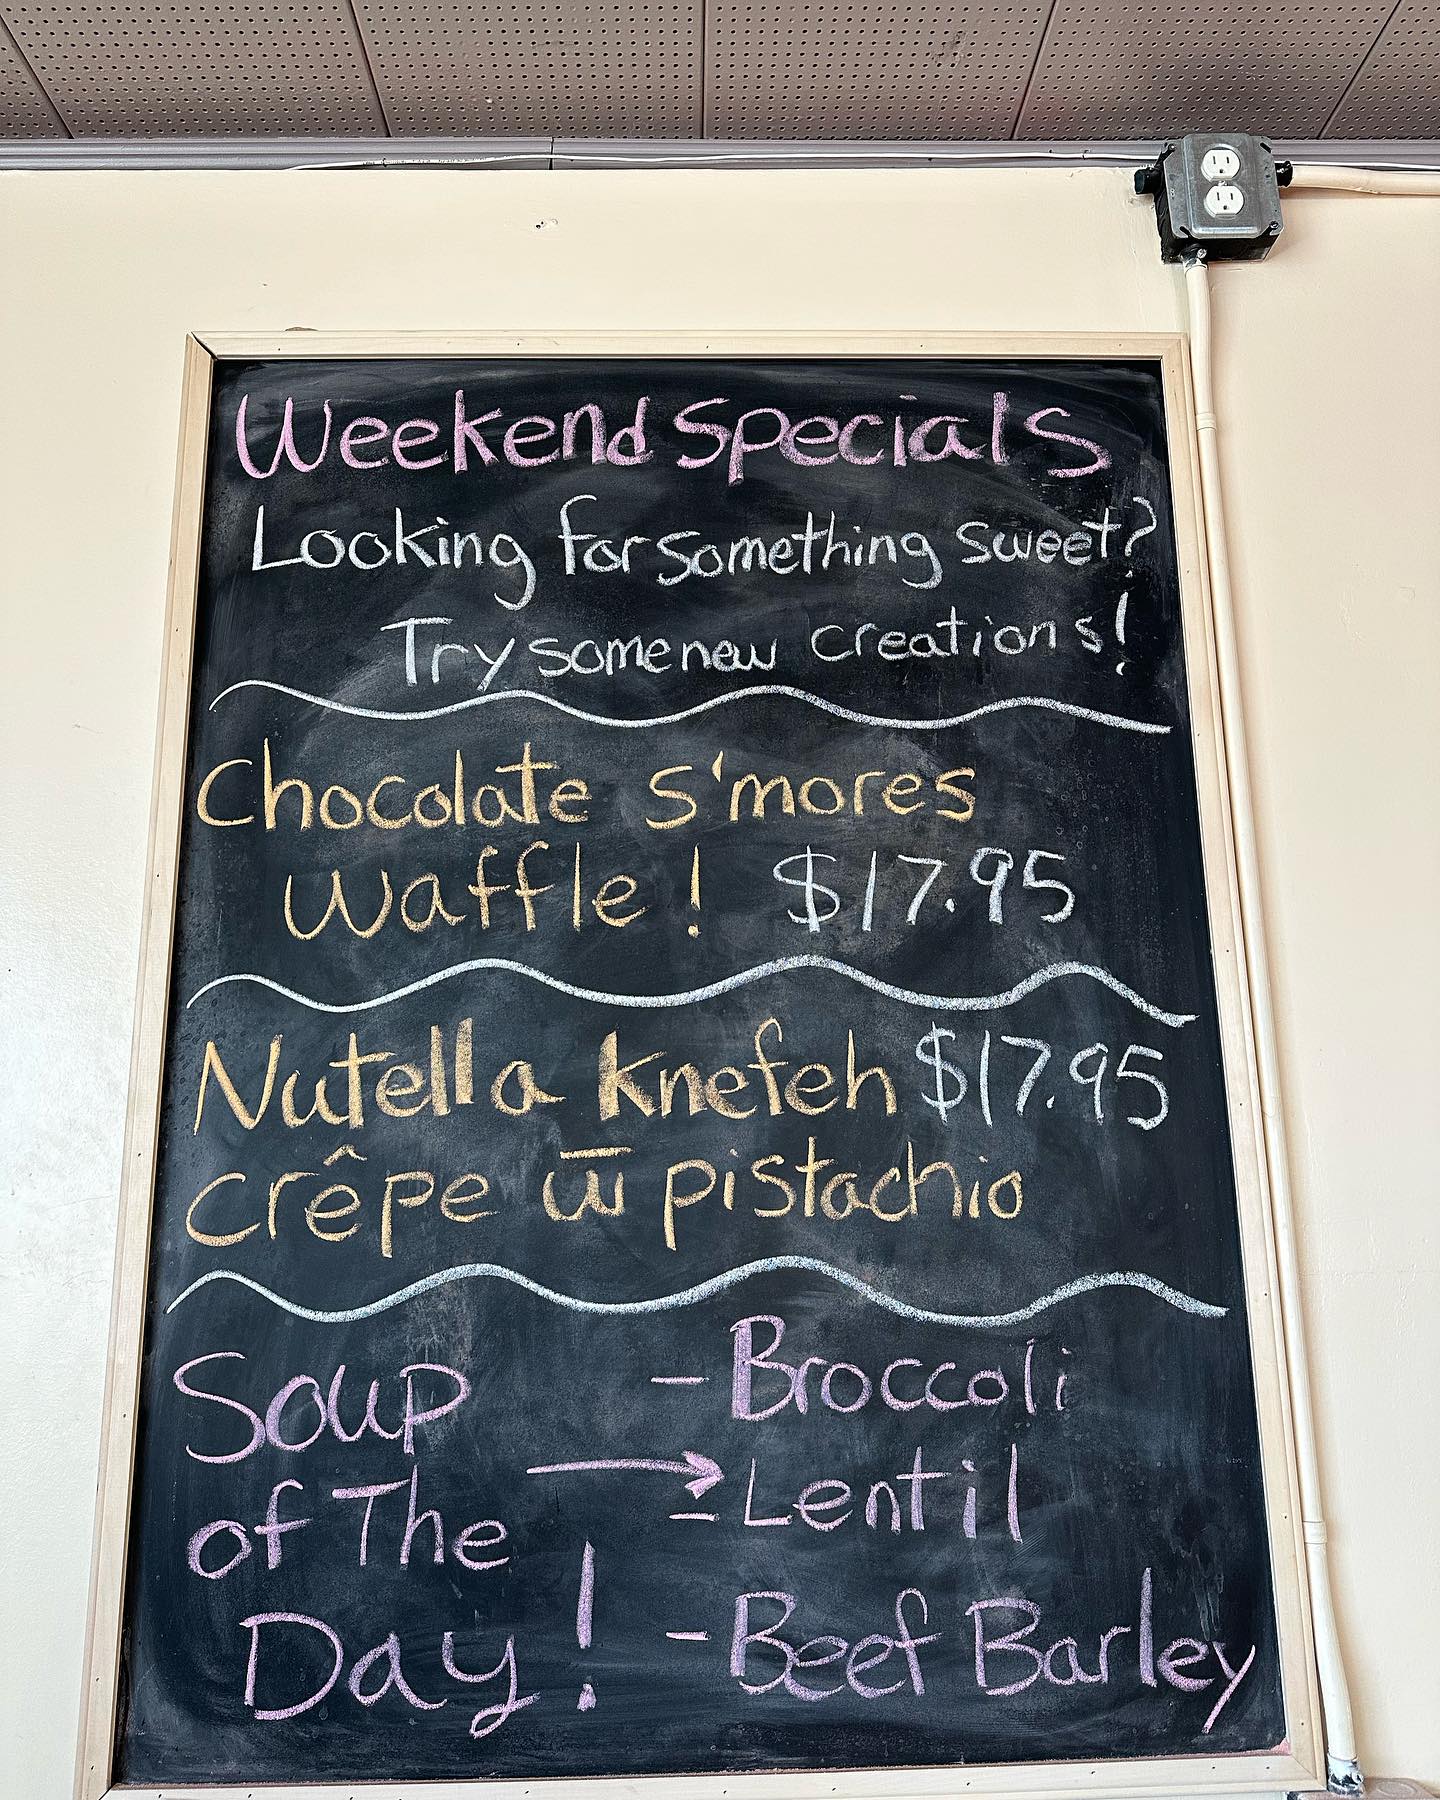 Weekend Specials
Looking for something sweet?
Try some new creations!
Chocolate S'mores
Waffle! $17.95
Nutella Knefeh $17.95
crêpe w̅ pistachio
Soup - Broccoli
of The → - Lentil
Day! - Beef Barley